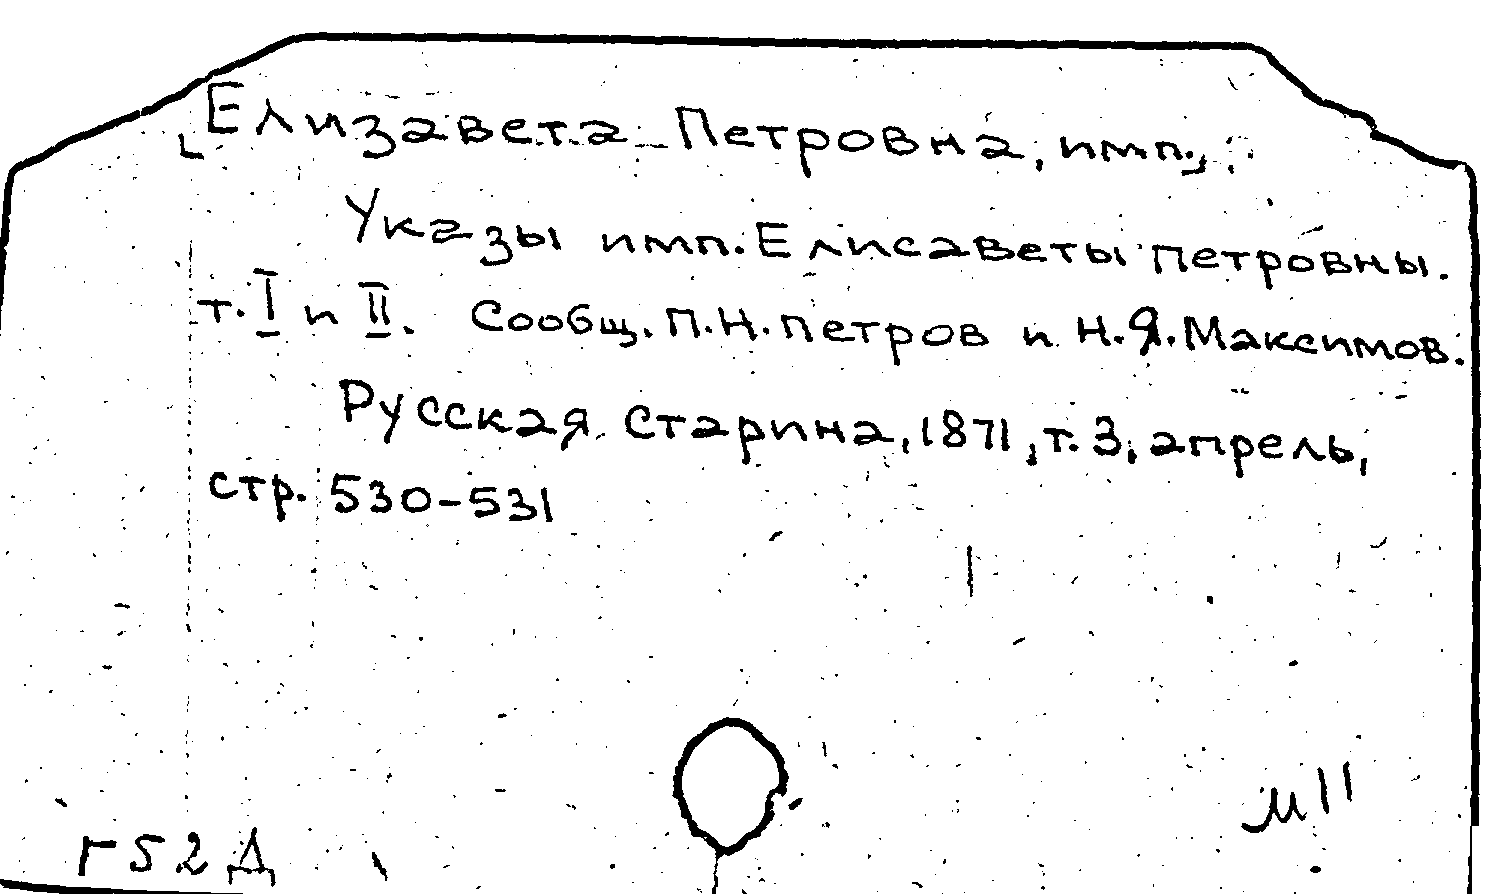 Елизавета Петровна, имп.,
Указы имп. Елисаветы Петровны.
т. I и II. Сообщ. П.Н. Петров и Н.Я. Максимов.
Русская старина, 1871, т. 3, апрель,
стр. 530-531
г 52 Д